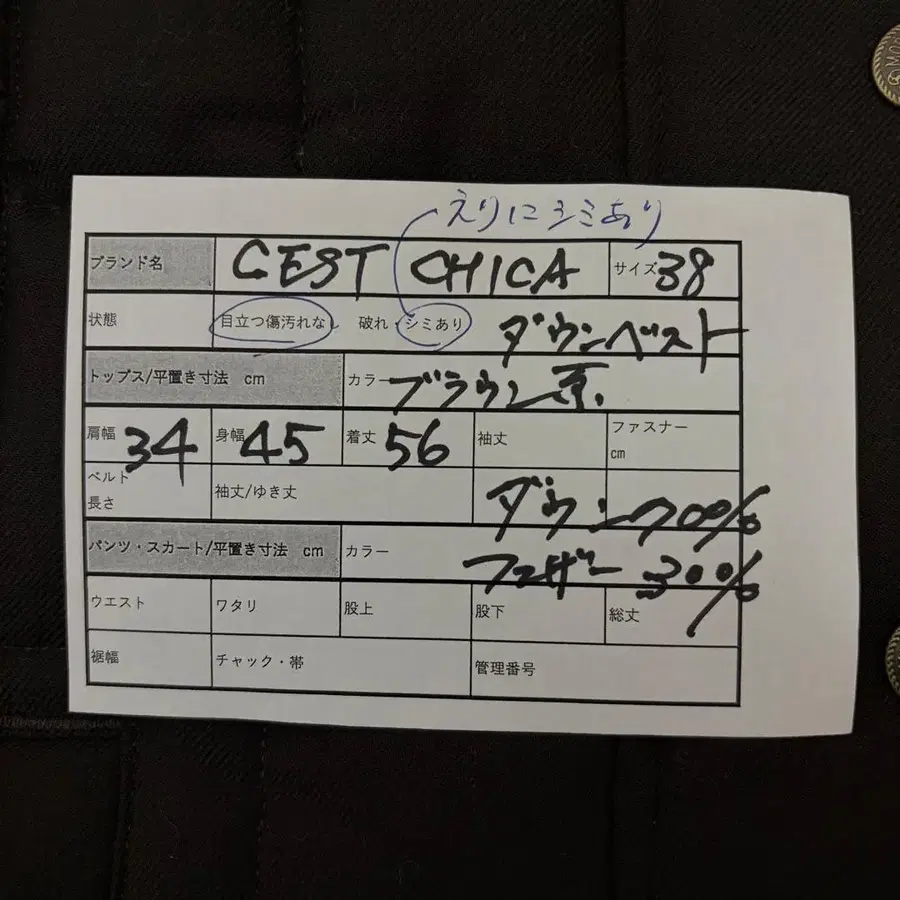 えりにシミあり
ブランド名 CEST CHICA サイズ 38
状態 目立つ傷汚れなし 破れ・シミあり ダウンベスト
トップス/平置き寸法 cm カラー ブラウン系
肩幅 34 身幅 45 着丈 56 袖丈 ファスナー
cm
ベルト
長さ 袖丈/ゆき丈 ダウン70%
パンツ・スカート/平置き寸法 cm カラー フェザー 30%
ウエスト ワタリ 股上 股下 総丈
裾幅 チャック・帯 管理番号